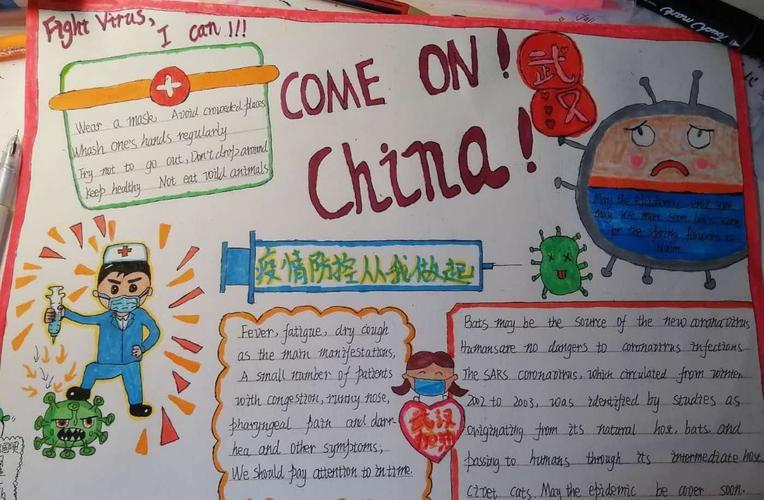 Fight Virus,
I can!!!
COME ON!
China!
武
汉
Wear a mask. Avoid crowded places
Whash one's hands regularly
Try not to go out, Don't drop around
Keep healthy Not eat wild animals
May the epidemic end soon,
may we meet soon. Let's wait
for the spring flowers to
bloom.
疫情防控从我做起
Fever, fatigue, dry cough
as the main manifestations,
A small number of patients
with congestion, runny nose,
pharyngeal pain and diarr-
hea and other symptoms,
We should pay attention to in time.
武汉
加油
Bats may be the source of the new coronavirus
Humans are no dangers to coronavirus infections
The SARS coronavirus, which circulated from winter
2002 to 2003, was identified by studies as
originating from its natural host, bats, and
passing to humans through its intermediate host
civet cats. May the epidemic be cover soon.